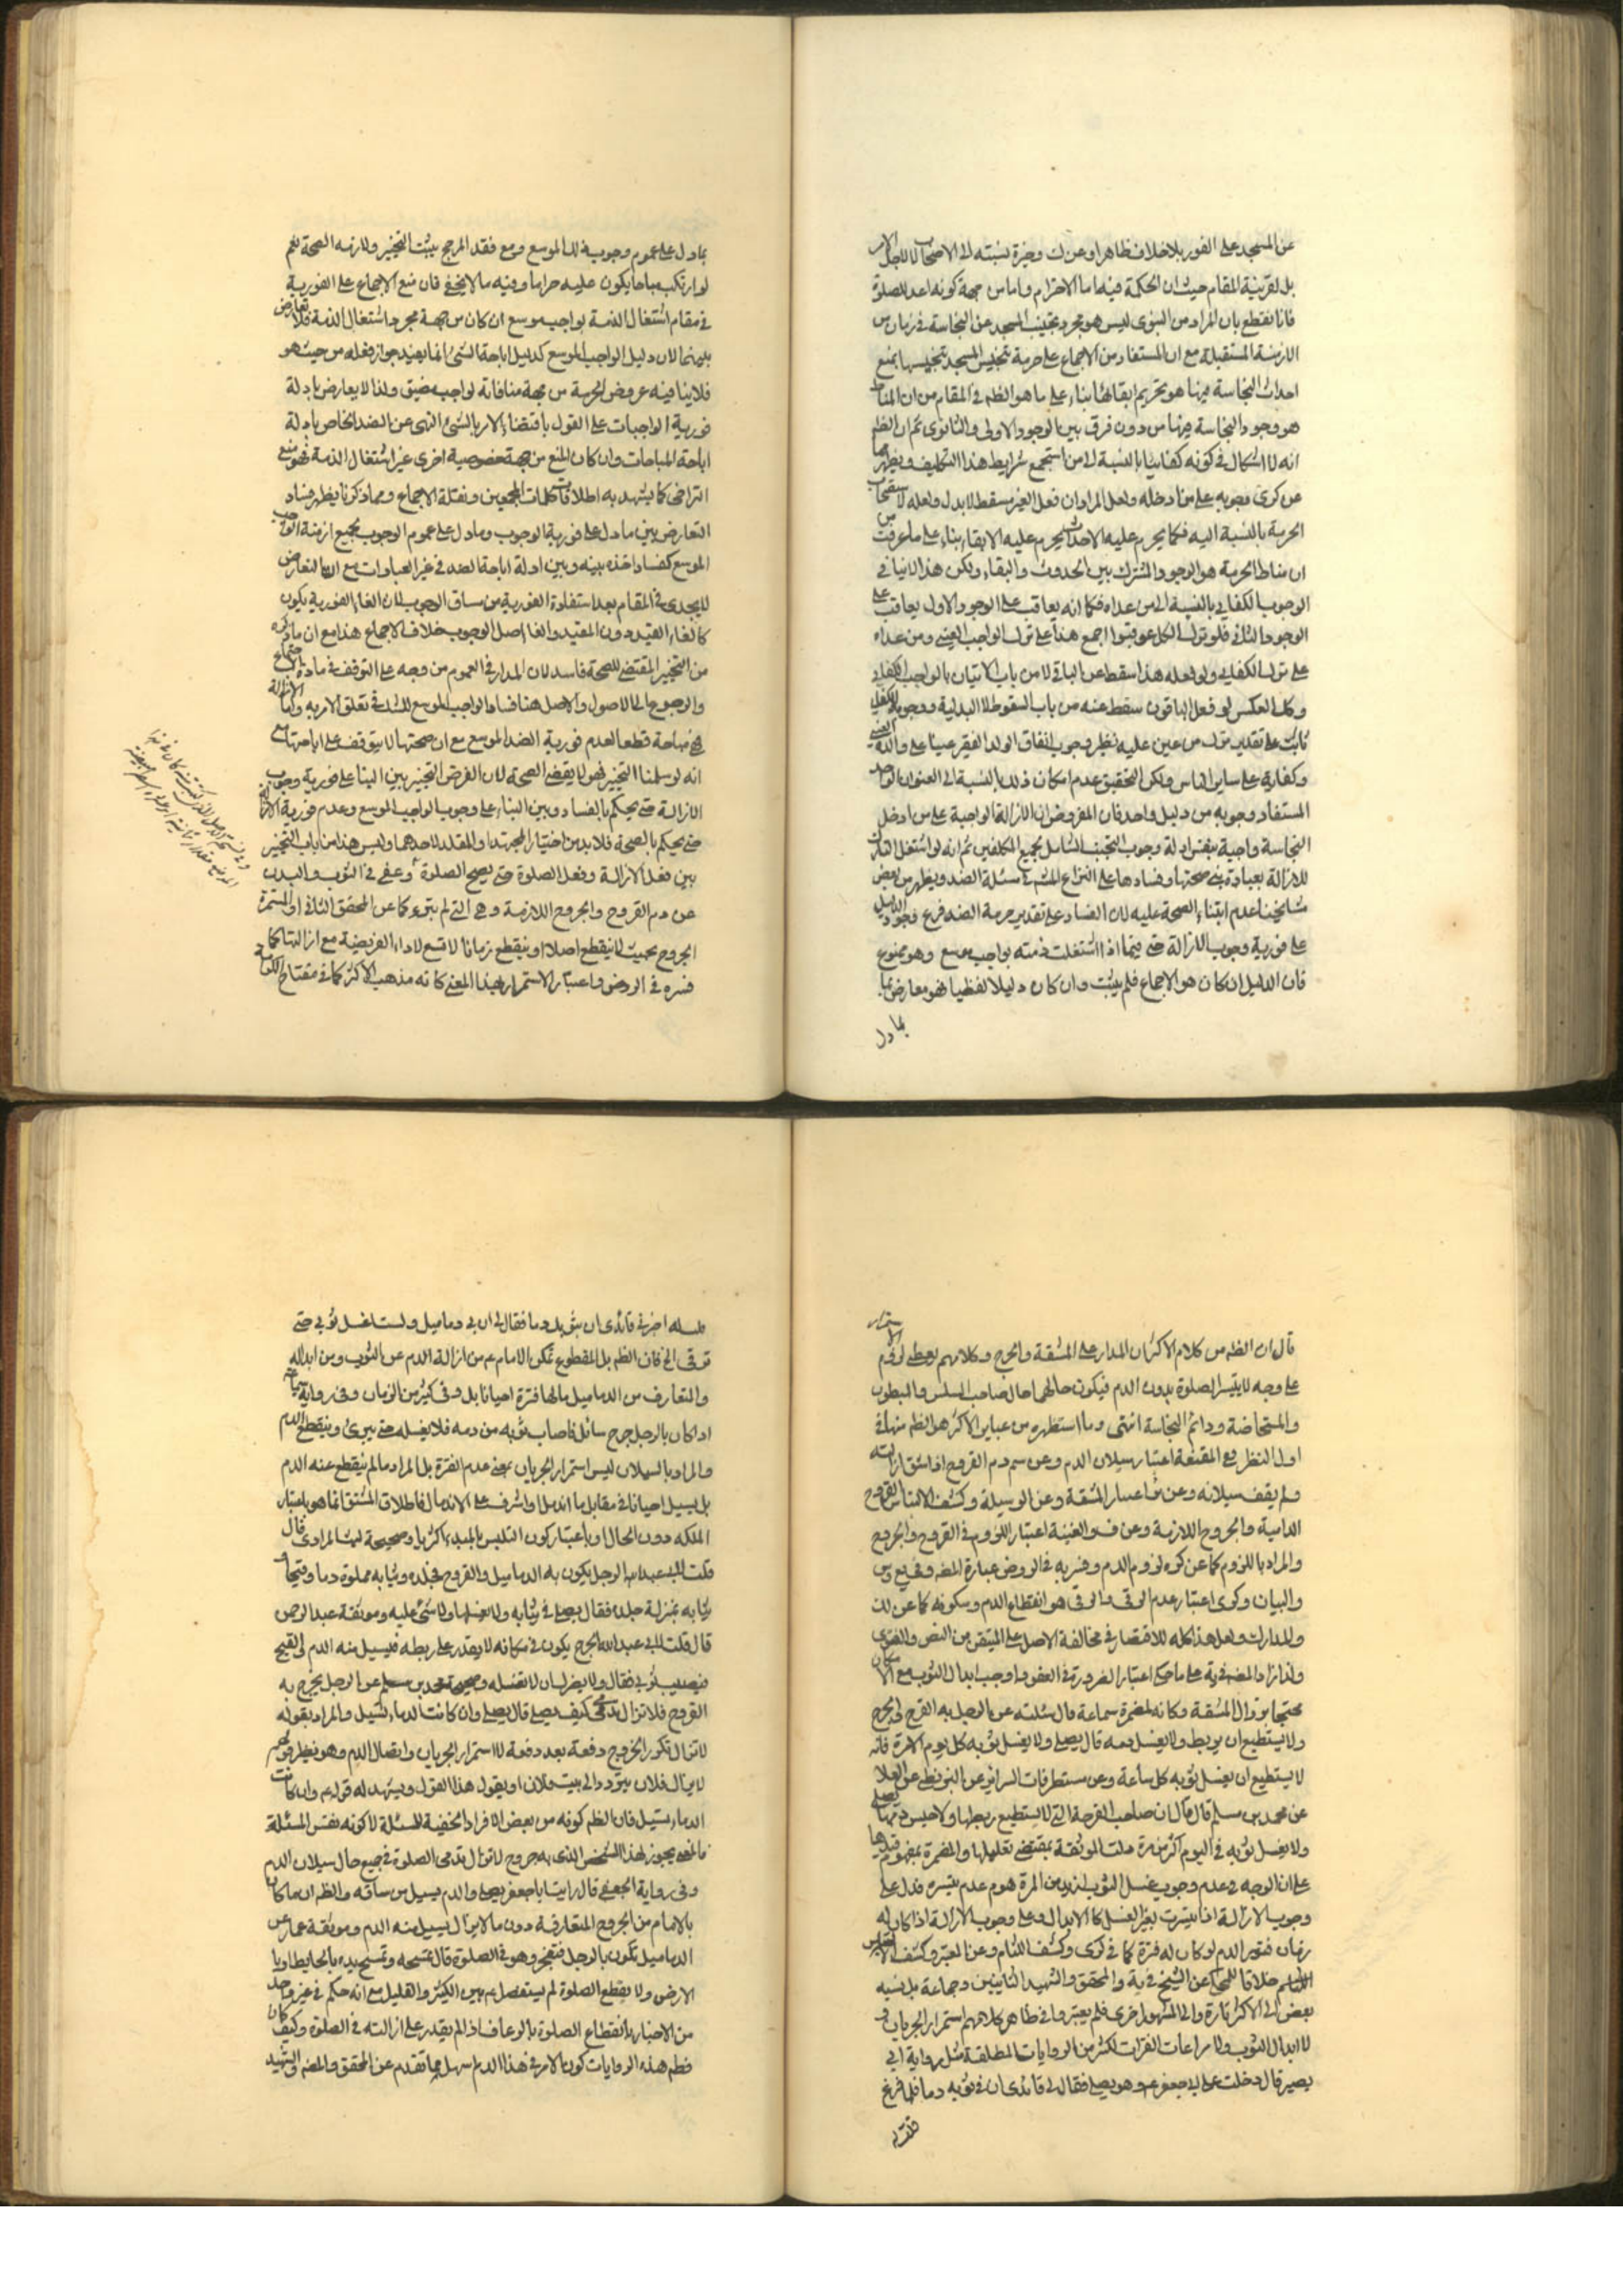 عن المسجد على الفور بلا خلاف ظاهرا وعن ك وخيرة نسبته الى الاصحاب لا لاجل الامر
بل لقرينية المقام حيث ان الحكمة فيه اما الاحترام واما من جهة كونه اعد للصلوة
فانا نقطع بان المراد من النبوى ليس هو مجرد تجنيب المسجد عن النجاسة فى زمان من
الازمنة المستقبلة مع ان المستفاد من الاجماع على حرمة تنجيس المسجد تنجيسها بمنع
احداث النجاسة فيها هو تحريم ابقائها بناء على ما هو الظم فى المقام من ان المناط
هو وجود النجاسة فيها من دون فرق بين الوجود الاولى والثانوى ثم ان الظم
انه لا اشكال فى كونه كفائيا بالنسبة الى من استجمع شرايط هذا التكليف ويظهر
عن كرى وجوبه على من ادخله ولعل المراد ان فعل الغير مسقط لا بدل ولعله لاستصحاب
الحرمة بالنسبة اليه فكما يحرم عليه الاحداث يحرم عليه الابقاء بناء على ما عرفت من
ان مناط الحرمة هو الوجود المشترك بين الحدوث والبقاء ولكن هذا لا ينافى
الوجوب الكفائى بالنسبة الى من عداه فكما انه يعاقب على الوجود الاول يعاقب على
الوجود الثانى فلو ترك الكل عوقبوا اجمع هذا على ترك الواجب العينى ومن عداه
على ترك الكفائى ولو فعله هذا سقط عن الباقى لا من باب الاتيان بالواجب الكفائى
وكذا العكس لو فعل الباقون سقط عنه من باب السقوط لا البدلية ووجوبه الكفائى
ثابت على تقدير ترك من عين عليه نظير وجوب انفاق الولد الفقير عينا على والده الغنى
وكفاية على ساير الناس ولكن التحقيق عدم امكان ذلك بالنسبة الى العنوان الواحد
المستفاد وجوبه من دليل واحد فان المفروض ان الازالة الواجبة على من ادخل
النجاسة واجبة بنفس ادلة وجوب التجنب الشامل لجميع المكلفين ثم انه لو اشتغل التارك
للازالة بعبادة بنى صحتها وفسادها على النزاع المشهور فى مسئلة الضد ويظهر من بعض
مشايخنا عدم ابتناء الصحة عليه لان الفساد على تقدير حرمة الضد فرع وجود الدليل
على فورية وجوب الازالة حتى فيما اذا اشتغلت ذمته بواجب موسع وهو ممنوع
فان الدليل ان كان هو الاجماع فلم يثبت وان كان دليلا لفظيا فهو معارض بما
بما دل
بما دل على عموم وجوب ذلك الموسع ومع فقد المرجح يثبت التخيير ولازمه الصحة نعم
لو ارتكب مباحا يكون عليه حراما وفيه ما لا يخفى فان منع الاجماع على الفورية
فى مقام اشتغال الذمة بواجب موسع ان كان من جهة مجرد اشتغال الذمة فلا تعارض
بينهما لان دليل الواجب الموسع كدليل اباحة الشئ انما يفيد جواز فعله من حيث هو
فلا ينافيه عروض الحرمة من جهة منافاته لواجب مضيق ولذا لا يعارض بادلة
فورية الواجبات على القول باقتضاء الامر بالشئ النهى عن الضد الخاص بادلة
اباحة المباحات وان كان المنع من جهة خصوصية اخرى غير اشتغال الذمة فهو منع
التراخى كما يشهد به اطلاقات كلمات المجمعين ونقلة الاجماع ومما ذكرنا يظهر فساد
التعارض بين ما دل على فورية الوجوب وما دل على عموم الوجوب لجميع ازمنة الواجب
الموسع كفساد اخذه بينه وبين ادلة اباحة الضد فى غير العبادات مع ان التعارض
لا يجدى فى المقام بعد استفادة الفورية من مساق الوجوب لان الغاء الفورية يكون
كالغاء القيد دون المقيد والغاء اصل الوجوب خلاف الاجماع هذا مع ان ما ذكره
من التخيير المقتضى للصحة فاسد لان المدار فى العموم من وجه على التوقف فى مادة الاجتماع
والرجوع الى الاصول والاصل هنا فساد الواجب الموسع للشك فى تعلق الامر به واما الازالة
فهى مباحة قطعا لعدم فورية الضد الموسع مع ان صحتها لا يتوقف على اباحتها مع
انه لو سلمنا التخيير فهو لا يقضى الصحة لان الغرض التخيير بين البناء على فورية وجوب
الازالة حتى يحكم بالفساد وبين البناء على وجوب الواجب الموسع وعدم فورية الازالة
حتى يحكم بالصحة فلا بد من اختيار المجتهد او المقلد لاحدهما وليس هذا من باب التخيير
بين فعل الازالة وفعل الصلوة حتى يصح الصلوة وعفى فى الثوب والبدن
عن دم القروح والجروح اللازمة وهى التى لم تبرء كما عن المحقق الثانى او المستمرة
الجروح بحيث لا ينقطع اصلا او ينقطع زمانا لا تسع لاداء الفريضة مع ازالتها كما
فسره فى الروض واعتبار الاستمرار بهذا المعنى كانه مذهب الاكثر كما فى مفتاح الكرامة
قال ان الظم من كلام الاكثر ان المدار على المشقة والحرج وكلامهم يعطى لزوم الاستمرار
على وجه لا يتيسر الصلوة بدون الدم فيكون حالهما حال صاحب السلس والمبطون
والمستحاضة ودائم النجاسة انتهى وما استظهره من عباير الاكثر هو الظم منها فى
اول النظر فعن المقنعة اعتبار سيلان الدم وعن سم دم القروح اذا شق ازالته
ولم يقف سيلانه وعن اعتبار المشقة وعن الوسيلة وكشف الالتباس القروح
الدامية والجروح اللازمة وعن والغنية اعتبار اللزوم فى القروح والجروح
والمراد باللزوم كما عن كره لزوم الدم وفسر به فى الروض عبارة المصنف وفى يع وس
والبيان وكرى اعتبار عدم الرقى والرقى هو انقطاع الدم وسكونه كما عن لك
والمدارك ولعل هذا كله للاقتصار فى مخالفة الاصل على المتيقن من النص والفتوى
ولذا زاد المصنف فى ية على ما حكى اعتبار الضرورة فى العفو فاوجب ابدال الثوب مع الامكان
محتجا بزوال المشقة وكانه لمضمرة سماعة قال سئلته عن الرجل به القرح او الجرح
ولا يستطيع ان يربطه ولا يغسل دمه قال يصلى ولا يغسل ثوبه كل يوم الا مرة فانه
لا يستطيع ان يغسل ثوبه كل ساعة وعن مستطرفات السرائر عن البزنطى عن العلا
عن محمد بن مسلم قال قال ان صاحب القرحة التى لا يستطيع ربطها ولا حبس دمها يصلى
ولا يغسل ثوبه فى اليوم اكثر من مرة دلت الموثقة بمقتضى تعليلها والمضمرة بمفهوم قيدها
على ان الوجه فى عدم وجوب غسل الثوب ازيد من المرة هو عدم تيسره فدل على
وجوب الازالة اذا تيسرت بغير الغسل كالابدال وعلى وجوب الازالة اذا كان له
زمان فتور الدم لو كان له فترة كما فى كرى وكشف اللثام وعن المعتبر وكشف الالتباس
خلافا للمحكى عن الشيخ فى ية والمحقق والشهيد الثانيين وجماعة بل نسبه
بعض الى الاكثر تارة والى المشهور اخرى فلم يعتبروا فى ظاهر كلامهم استمرار الجريان ولا
لا ابدال الثوب ولا مراعات الفترات لكثير من الروايات المطلقة مثل رواية ابى
بصير قال دخلت على ابى جعفر ع وهو يصلى فقال لى قائدى ان فى ثوبه دما فلما فرغ
قلت له
قلت له اخبرنى قائدى ان بثوبك دما فقال لى ان بى دماميل ولست اغسل ثوبى حتى
تبرئ الخ فان الظم بل المقطوع تمكن الامام ع من ازالة الدم عن الثوب ومن ابداله
والمتعارف من الدماميل مالها فترة احيانا بل وفى كثير من الزمان وفى رواية سماعة
اذا كان بالرجل جرح سائل فاصاب ثوبه من دمه فلا يغسله حتى يبرئ وينقطع الدم
والمراد بالسيلان ليس استمرار الجريان بمعنى عدم الفترة بل المراد ما لم ينقطع عنه الدم
بل يسيل احيانا فى مقابل ما اندمل واشرف على الاندمال فاطلاق المشتق انما هو باعتبار
الملكة دون الحال او باعتبار كون التلبس بالمبدء اكثريا وصحيحة ليث المرادى قال
قلت لابى عبد الله الرجل يكون به الدماميل والقروح فجلده وثيابه مملوة دما وقيحا و
ثيابه بمنزلة جلده فقال يصلى فى ثيابه ولا يغسلها ولا شئ عليه وموثقة عبد الرحمن
قال قلت لابى عبد الله الجرح يكون فى مكانه لا يقدر على ربطه فيسيل منه الدم او القيح
فيصيب ثوبى فقال ولا يضرك ان لا تغسله وصحيحة محمد بن مسلم عن الرجل يخرج به
القروح فلا تزال تدمى كيف يصلى قال يصلى وان كانت الدماء تسيل والمراد بقوله
لا تزال تكرر الخروج دفعة بعد دفعة لا استمرار الجريان واتصال الدم وهو نظير قولهم
لا يزال فلان يتردد الى بيت فلان او يقول هذا القول ويشهد له قوله ع وان كانت
الدماء تسيل فان الظم كونه من بعض الافراد الخفية للمسئلة لا كونه نفس المسئلة
فالمعنى يجوز لهذا الشخص الذى به جروح لا تزال تدمى الصلوة فى جميع حال سيلان الدم
وفى رواية الجعفى قال رايت ابا جعفر يصلى والدم يسيل من ساقه والظم ان ما كان
بالامام من الجروح المتعارفة دون ما لا يزال يسيل منه الدم وموثقة عمار عن
الدماميل تكون بالرجل فتنفجر وهو فى الصلوة قال يمسحه ويمسح يده بالحايط او با
الارض ولا يقطع الصلوة لم يستفصل ع بين الكثير والقليل مع انه حكم فى غير واحد
من الاخبار بانقطاع الصلوة بالرعاف اذا لم يقدر على ازالته فى الصلوة وكيف كان
فظم هذه الروايات كون الامر فى هذا الدم اسهل مما تقدم عن المحقق والمصنف والشهيد